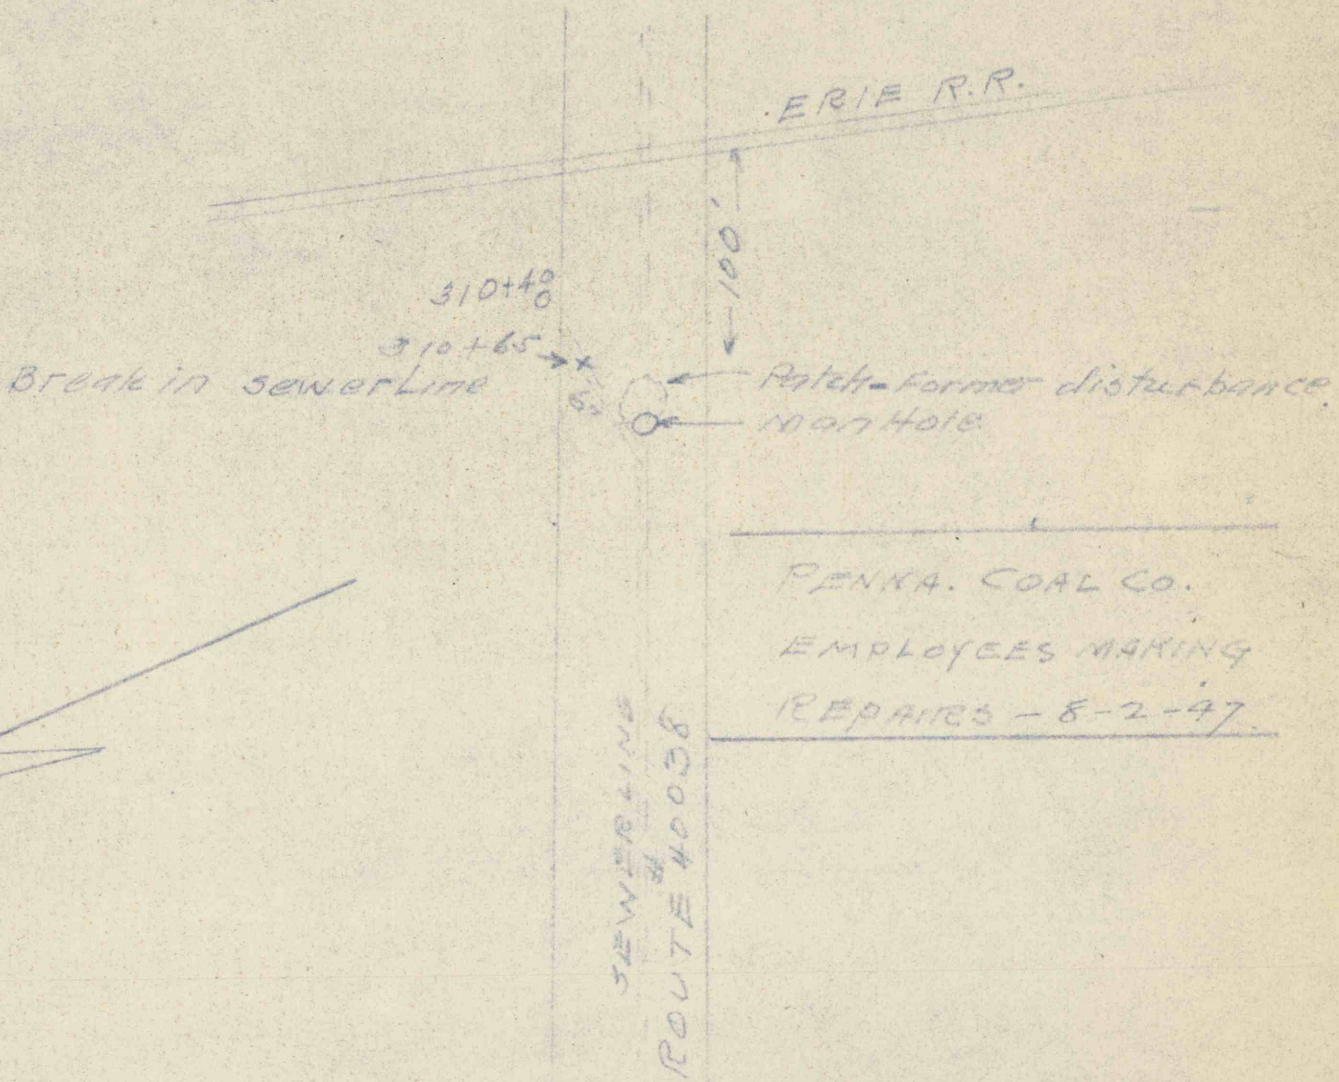 ERIE R.R.
100'
310+40
310+65
Break in sewer Line
Patch-Former disturbance
Man Hole
PENNA. COAL CO.
EMPLOYEES MAKING
REPAIRS - 8-2-47.
SEWER LINE
ROUTE # 40038